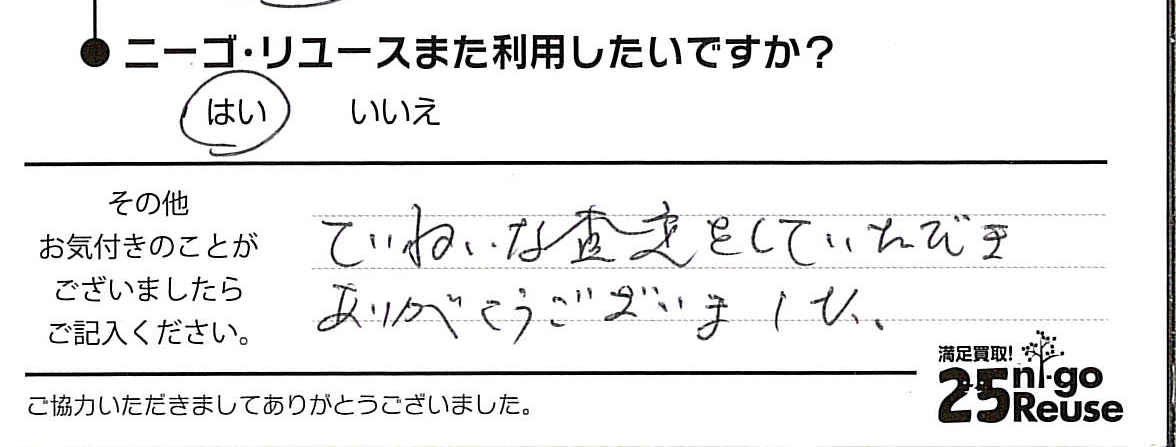 ニーゴ・リユースまた利用したいですか？
はい いいえ
その他
お気付きのことが
ございましたら
ご記入ください。
ていねいな査定をしていただき
ありがとうございました。
満足買取!
25 ni-go
Reuse
ご協力いただきましてありがとうございました。